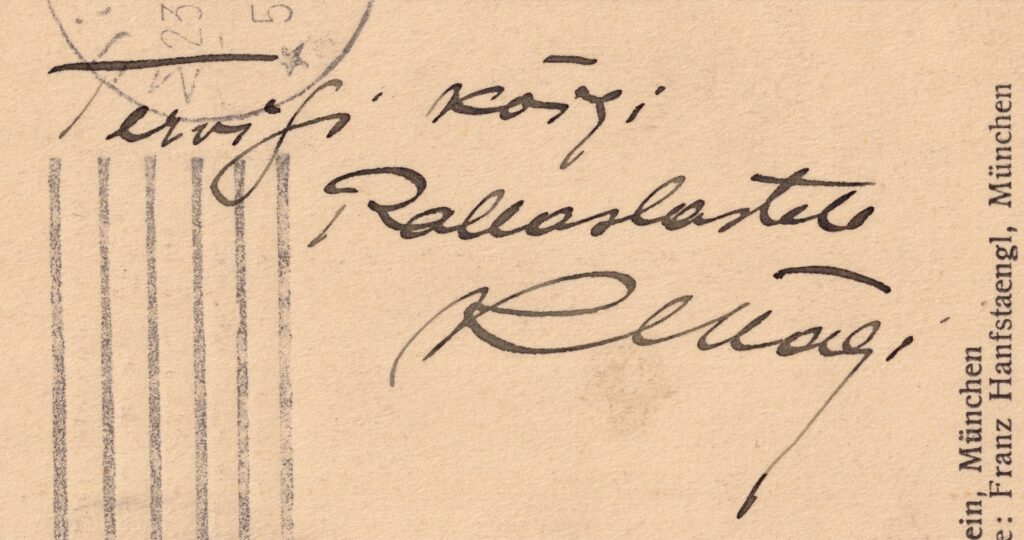 23
5
Tervisi kõigi
Pallaslastele
K Mägi
ein, München
e: Franz Hanfstaengl, München